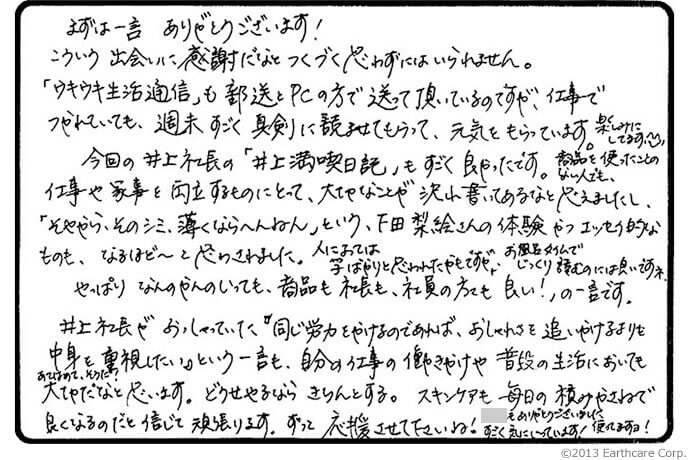 まずは一言 ありがとうございます！
こういう出会いに、感謝だなとつくづく思わずにはいられません。
「ウキウキ生活通信」も郵送とPCの方で送って頂いているのですが、仕事で
つかれていても、週末すごく真剣に読ませてもらって、元気をもらっています。楽しみにしてます
今回の井上社長の「井上満喫日記」もすごく良かったです。商品を使ったことのない人でも、
仕事や家事を両立するものにとって、大切なことが沢山書いてあるなと思えましたし、
「そやから、そのシミ、薄くならへんねん」という、下田梨絵さんの体験やつエッセイ的な
ものも、なるほど〜と思わされました。人においては学ばかりと思われたかもですが、お風呂タイムでじっくり読むのには良いですネ
やっぱりなんのかんのいっても、商品も社長も、社員の方々も良い！、の一言です。
井上社長がおっしゃっていた『同じ労力をかけるのであれば、おしゃれさを追いかけるよりも
中身を重視したい』という一言も、自分の仕事の働きかけや普段の生活においても
あてはめて、そうだ!?
大切だなと思います。どうせやるならきちんとする。スキンケアも毎日の積みかさねで
良くなるのだと信じて頑張ります。ずっと応援させて下さいね！
もありがとうございました
すごく気にいっています！使ってますヨ！
©2013 Earthcare Corp.